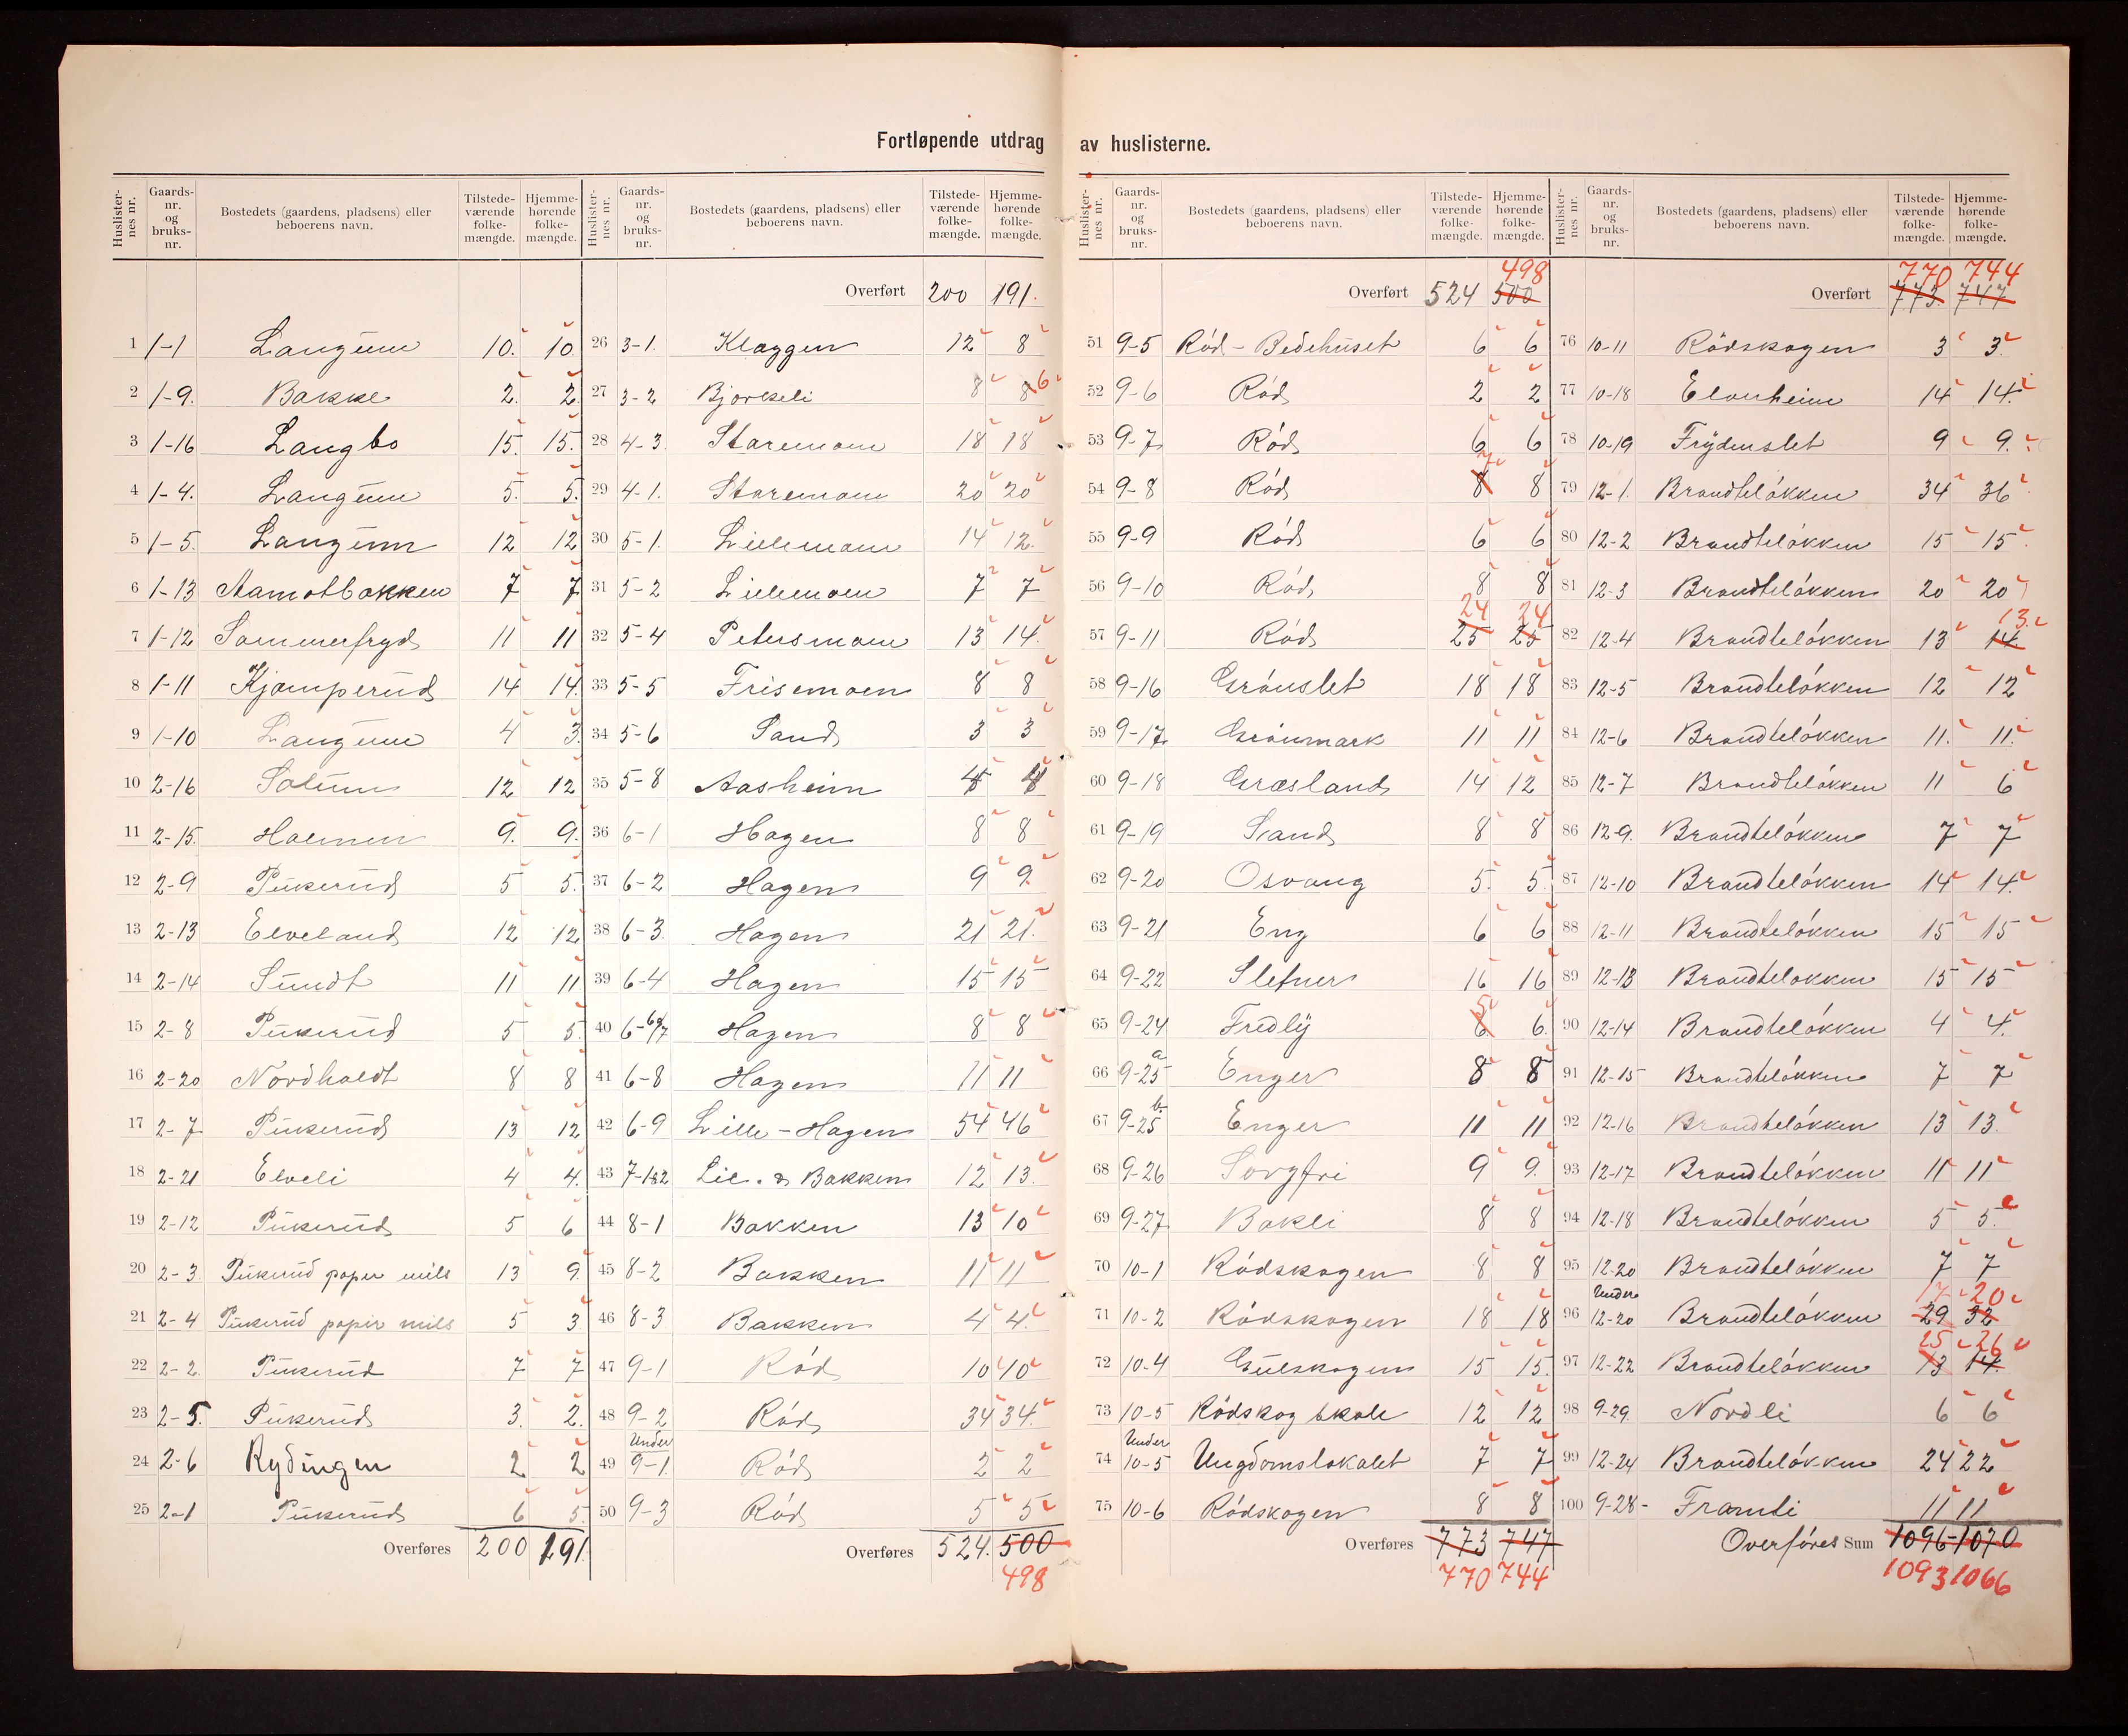 Fortløpende utdrag av huslisterne.
Huslister-nes nr. Gaards-nr. og bruks-nr. Bostedets (gaardens, pladsens) eller beboerens navn. Tilstede-værende folke-mængde. Hjemme-hørende folke-mængde.
1 1-1 Langum 10. 10
2 1-9. Bakke 2. 2.
3 1-16 Langbo 15. 15.
4 1-4. Langum 5. 5.
5 1-5. Langum 12 12
6 1-13 Aamotbakken 7 7
7 1-12 Sommerfryd 11 11
8 1-11 Kjamperud 14 14.
9 1-10 Langum 4 3.
10 2-16 Solum 12 12
11 2-15. Holmen 9. 9.
12 2-9 Pukerud 5 5.
13 2-13 Elveland 12 12
14 2-14 Sundt 11 11
15 2-8 Pukerud 5 5.
16 2-20 Nordholdt 8 8
17 2-7 Pukerud 13 12
18 2-21 Elveli 4 4.
19 2-12 Pukerud 5 6
20 2-3. Pukerud paper mils 13 9.
21 2-4 Pukerud papir mils 5 3
22 2-2. Pukerud 7 7
23 2-5. Pukerud 3. 2.
24 2-6 Rydingen 2 2
25 2-1 Pukerud 6 5.
Overføres 200 191.
Huslister-nes nr. Gaards-nr. og bruks-nr. Bostedets (gaardens, pladsens) eller beboerens navn. Tilstede-værende folke-mængde. Hjemme-hørende folke-mængde.
Overført 200 191.
26 3-1. Klaggen 12 8
27 3-2 Bjorkeli 8 8 6
28 4-3. Staremoen 18 18
29 4-1. Storemoen 20 20
30 5-1. Lillemoen 14 12.
31 5-2 Lillemoen 7 7
32 5-4 Petersmoen 13 14.
33 5-5 Frisemoen 8 8
34 5-6 Sand 3 3
35 5-8 Aasheim 4 4
36 6-1 Hagen 8 8
37 6-2 Hagen 9 9.
38 6-3. Hagen 21 21.
39 6-4 Hagen 15 15
40 6-6&7 Hagen 8 8
41 6-8 Hagen 11 11
42 6-9 Lille-Hagen 54 46
43 7-1&2 Lie. & Bakken 12 13.
44 8-1 Bakken 13 10
45 8-2 Bakken 11 11
46 8-3 Bakken 4 4.
47 9-1 Rød 10 10
48 9-2 Rød 34 34.
49 Under 9-1. Rød 2 2
50 9-3 Rød 5 5
Overføres 524. 500
498
Huslister-nes nr. Gaards-nr. og bruks-nr. Bostedets (gaardens, pladsens) eller beboerens navn. Tilstede-værende folke-mængde. Hjemme-hørende folke-mængde.
498
Overført 524 500
51 9-5 Ród-Bedehuset 6 6
52 9-6 Ród 2 2
53 9-7 Ród 6 6
54 9-8 Ród 8 7 8
55 9-9 Ród 6 6
56 9-10 Ród 8 8
57 9-11 Ród 25 24 25 24
58 9-16 Grónslet 18 18
59 9-17. Grónmark 11 11
60 9-18 Græsland 14 12
61 9-19 Sand 8 8
62 9-20 Osvang 5. 5.
63 9-21 Eng 6 6
64 9-22 Slefner 16 16
65 9-24 Fredly 6 5 6.
66 9-25 a Enger 8 8
67 9-25 b. Enger 11 11
68 9-26 Sorgfri 9 9.
69 9-27. Bakli 8 8
70 10-1 Ródskogen 8 8
71 10-2 Ródskogen 18 18
72 10-4 Gulskogen 15 15.
73 10-5 Ródskog skole 12 12
74 Under 10-5 Ungdomslokalet 7 7
75 10-6 Ródskogen 8 8
Overføres 773 747
770 744
Huslister-nes nr. Gaards-nr. og bruks-nr. Bostedets (gaardens, pladsens) eller beboerens navn. Tilstede-værende folke-mængde. Hjemme-hørende folke-mængde.
770 744
Overført 773. 747
76 10-11 Ródskogen 3 3.
77 10-18 Elverheim 14 14.
78 10-19 Frydenslet 9 9.
79 12-1. Brandtelókken 34 36
80 12-2 Brandtelókken 15 15
81 12-3 Brandtelókken 20 20
82 12-4 Brandtelókken 13 14. 13.
83 12-5 Brandtelókken 12 12
84 12-6 Brandtelókken 11. 11.
85 12-7 Brandtelókken 11 6
86 12-9. Brandtelókken 7 7
87 12-10 Brandtelókken 14 14.
88 12-11 Brandtelókken 15 15
89 12-13 Brandtelokken 15 15
90 12-14 Brandtelókken 4 4.
91 12-15 Brandtelókken 7 7
92 12-16 Brandtelókken 13 13.
93 12-17 Brandtelókken 11 11
94 12-18 Brandtelókken 5 5.
95 12-20 Brandtelókken 7 7
96 Under 12-20 Brandtelókken 29 17 32 20
97 12-22 Brandtelókken 13 25 14. 26
98 9-29. Nordli 6 6
99 12-24 Brandtelókken 24 22
100 9-28- Framti 11 11
Overføres Sum 1096 1070
1093 1066